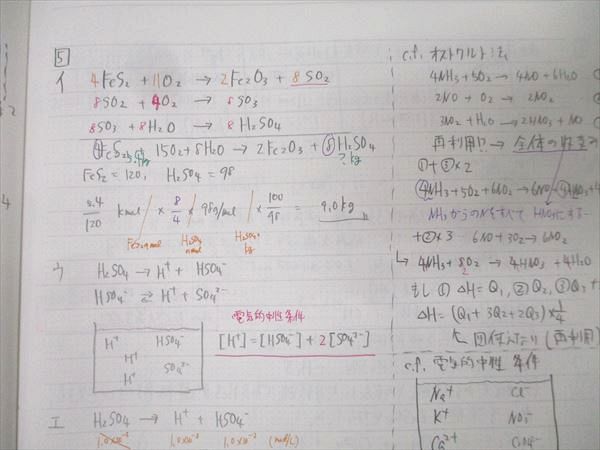 5
イ 4FeS2 + 11O2 → 2Fe2O3 + 8SO2
8SO2 + 4O2 → 8SO3
8SO3 + 8H2O → 8H2SO4
4FeS2 + 15O2 + 8H2O → 2Fe2O3 + 8H2SO4
? kg
FeS2 = 120, H2SO4 = 98
kmol × 8/4 × 98g/mol × 100/98 = 9.0kg
FeS2のmol
H2SO4の
mol
H2SO4の
kg
ウ H2SO4 → H+ + HSO4-
HSO4- ⇄ H+ + SO4 2-
電気的中性条件
[H+] = [HSO4-] + 2[SO4 2-]
H+ HSO4-
H+ SO4 2-
H+
エ H2SO4 → H+ + HSO4-
1.0×10-2 1.0×10-2 1.0×10-2 (mol/L)
c.f. オストワルト法
4NH3 + 5O2 → 4NO + 6H2O
2NO + O2 → 2NO2
3NO2 + H2O → 2HNO3 + NO
再利用!? → 全体の
①+③×2
NH3からのNをすべてHNO3にする
+②×3 6NO + 3O2 → 6NO2
↳ 4NH3 + 8O2 → 4HNO3 + 4H2O
2
もし① ΔH = Q1, ②Q2, ③Q3
ΔH = (Q1 + 3Q2 + 2Q3) × 1/4
(再利用)
c.f. 電気的中性条件
Na+ Cl-
K+ NO3-
Ca2+